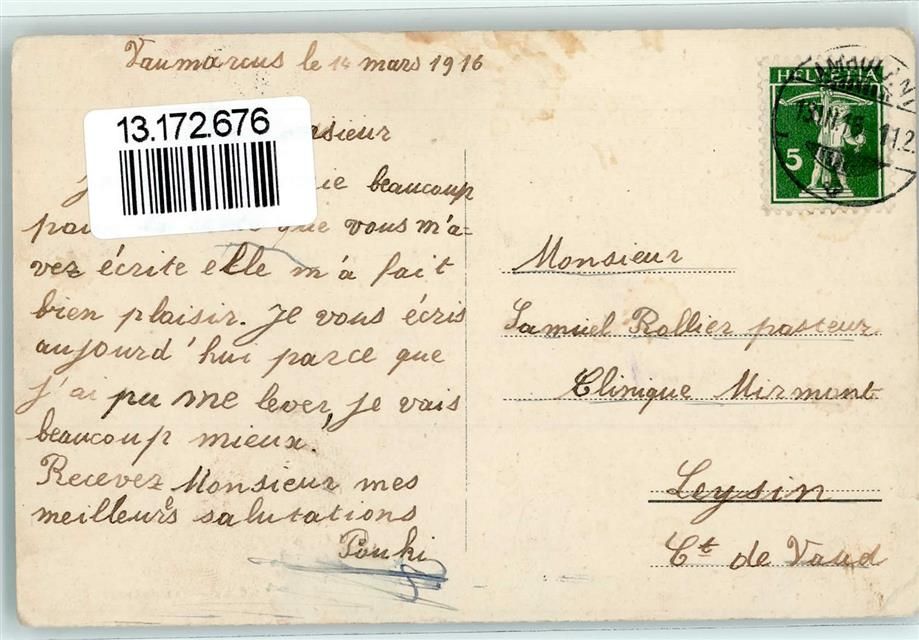 Vaumarcus le 14 mars 1916
13.172.676
beaucoup
que vous m'a-
vez écrite elle m'a fait
bien plaisir. Je vous écris
aujourd'hui parce que
j'ai pu me lever, je vais
beaucoup mieux.
Recevez Monsieur mes
meilleurs salutations
Pouki
HELVETIA
5
Monsieur
Samuel Rollier pasteur
Clinique Mirmont
Leysin
Ct de Vaud